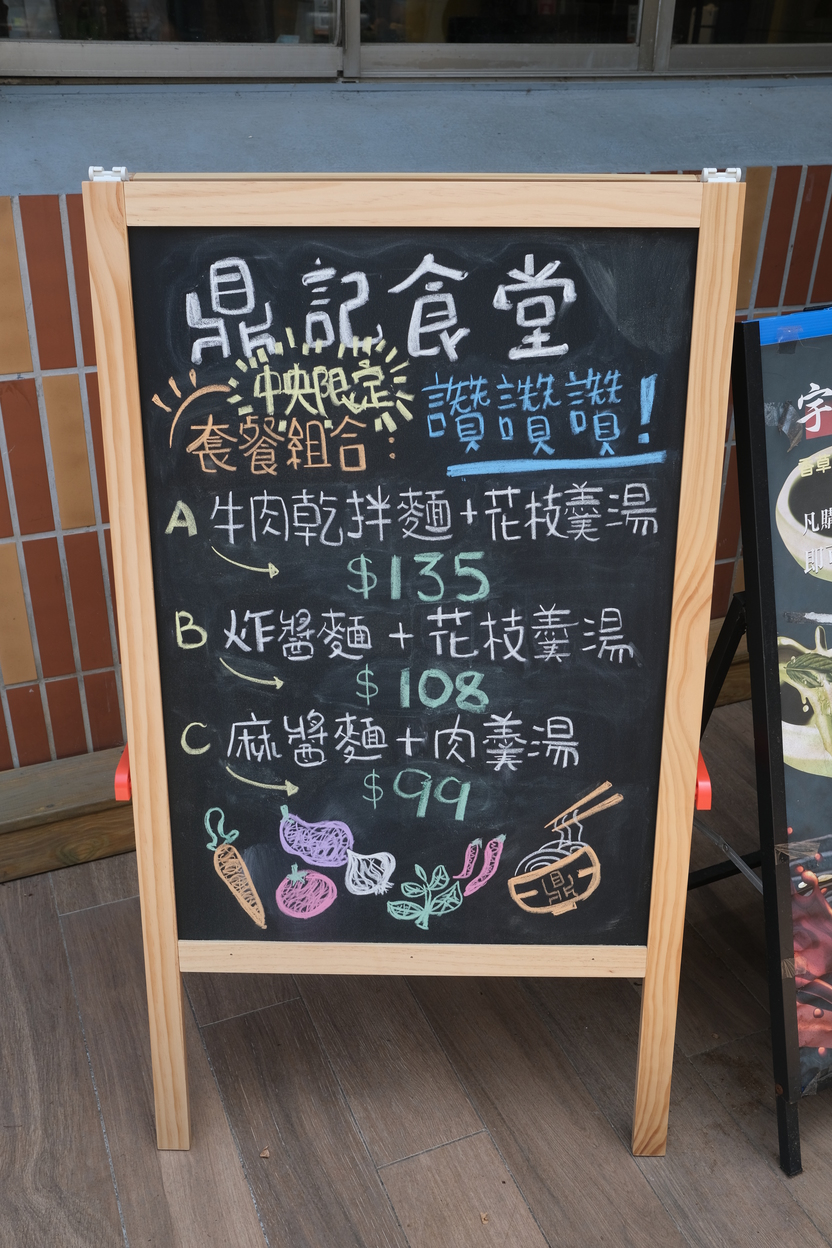 鼎記食堂
中央限定
套餐組合:
讚讚讚!
A 牛肉乾拌麵+花枝羹湯
$135
B 炸醬麵+花枝羹湯
$108
C 麻醬麵+肉羹湯
$99
鼎
宇
香草
凡購
即